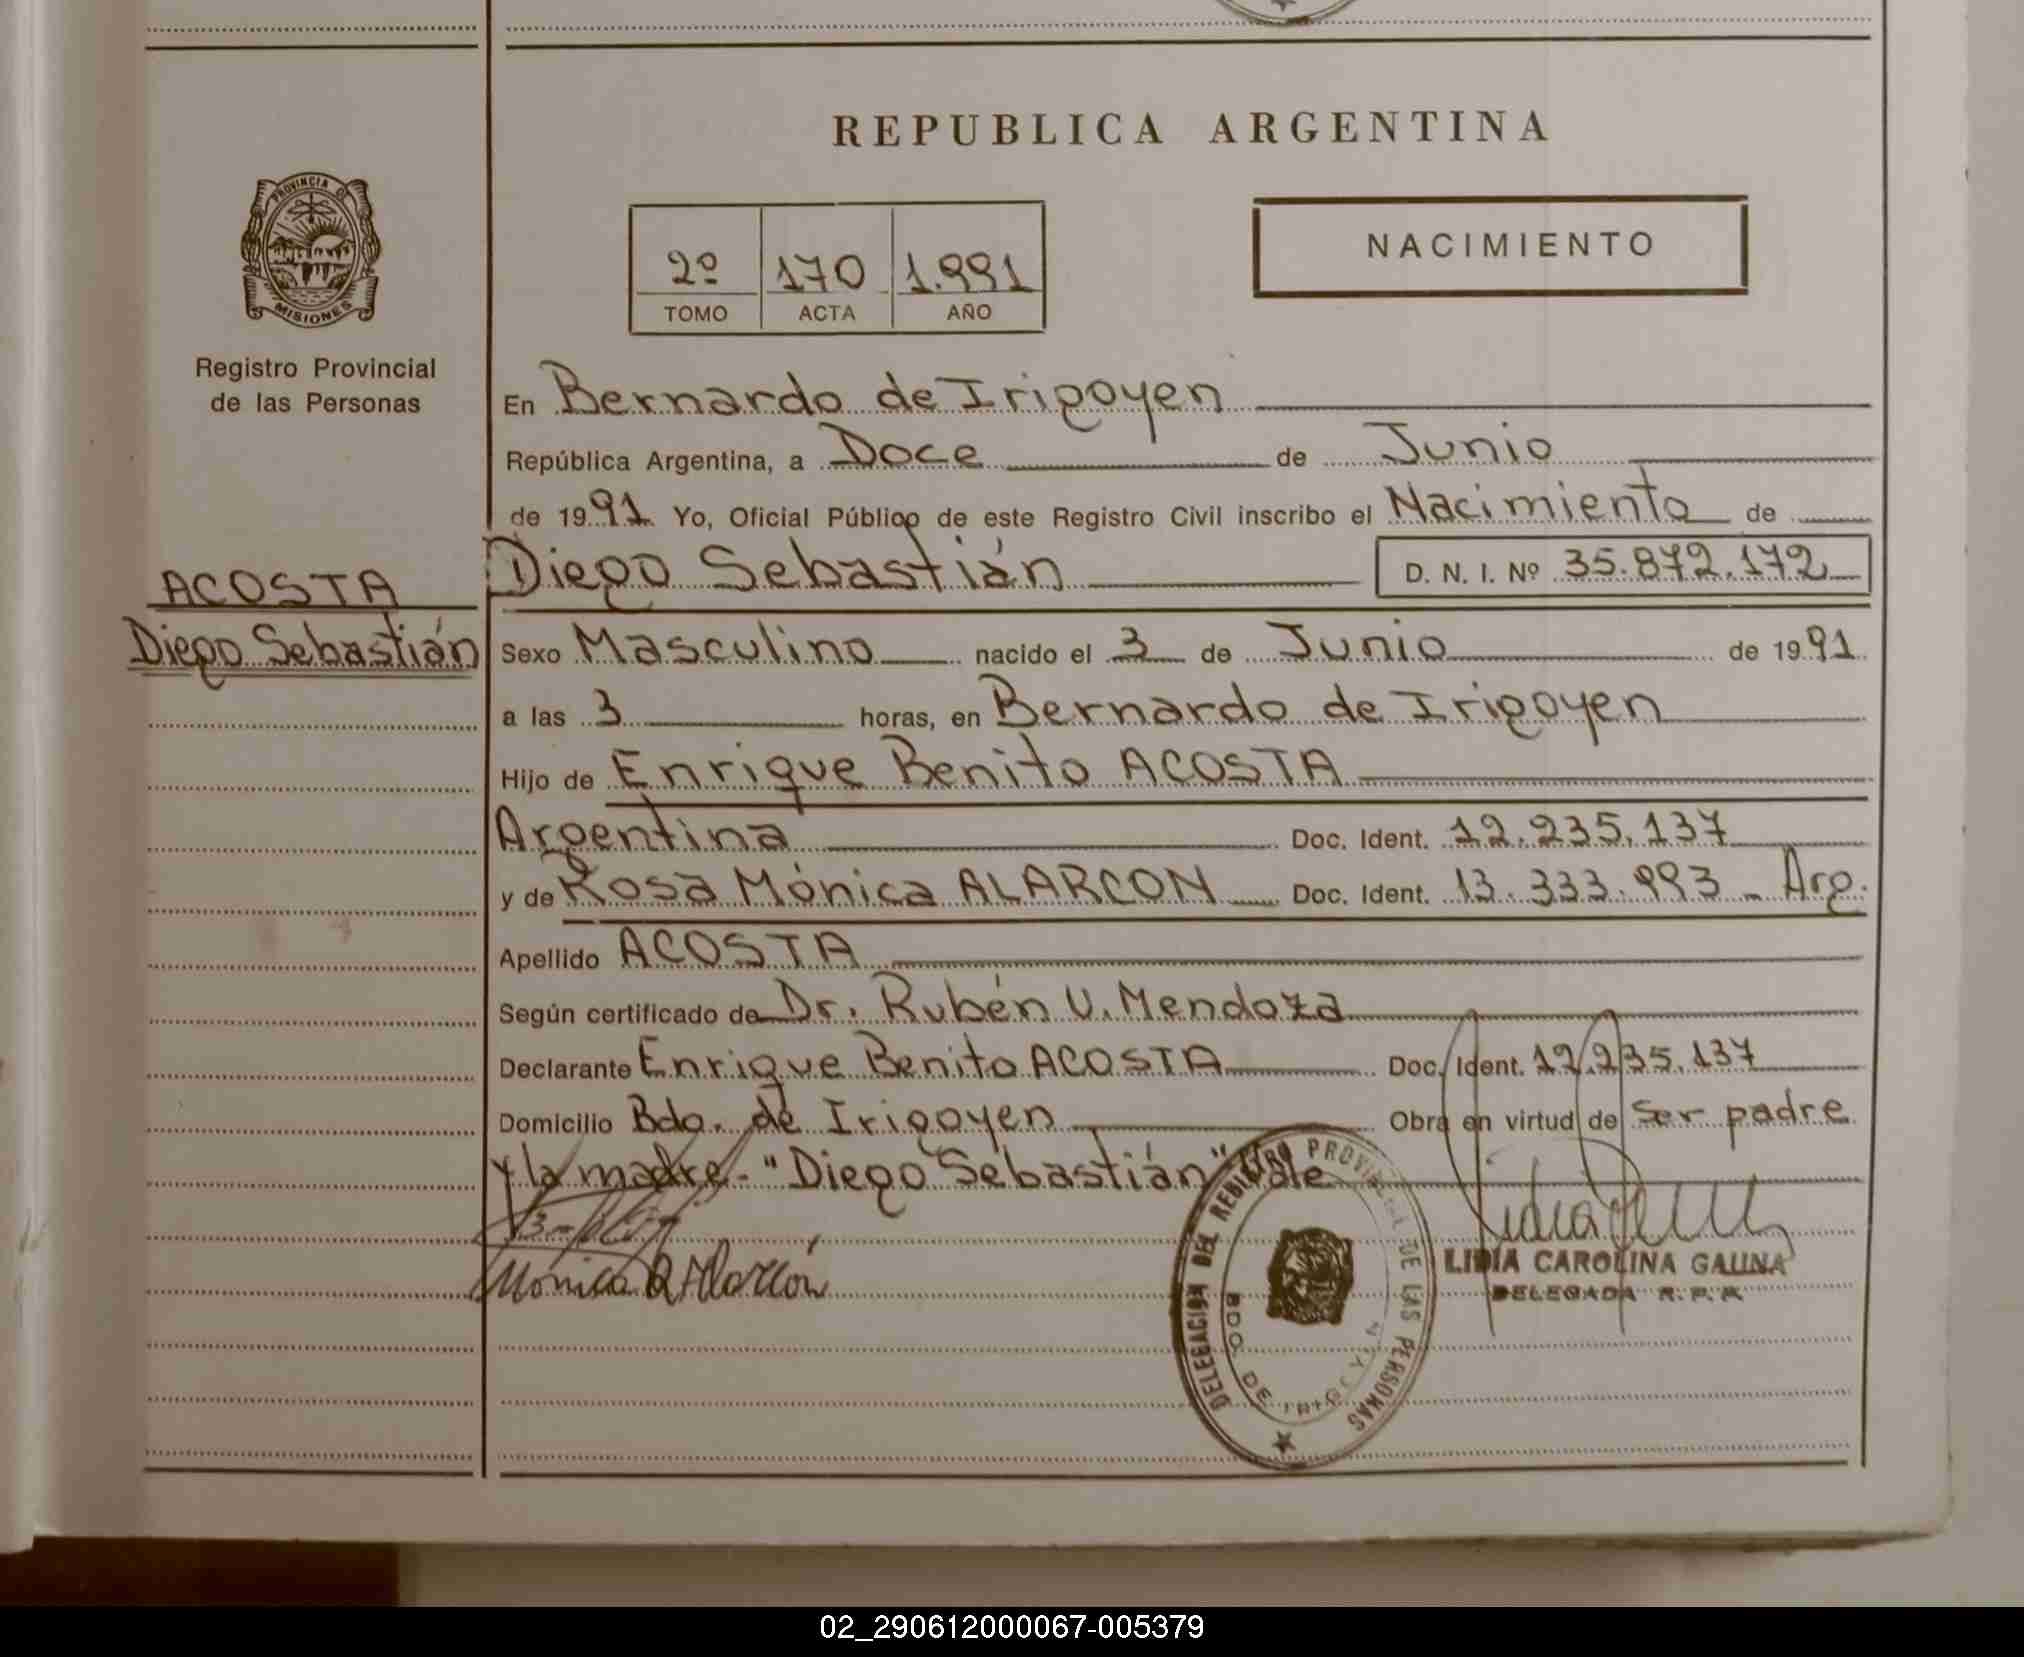 REPUBLICA ARGENTINA
PROVINCIA DE
MISIONES
Registro Provincial
de las Personas
2º 170 1.991
TOMO ACTA AÑO
NACIMIENTO
En Bernardo de Irigoyen
República Argentina, a Doce de Junio
de 1991 Yo, Oficial Público de este Registro Civil inscribo el Nacimiento de
Diego Sebastián D. N. I. Nº 35.872.172
ACOSTA
Diego Sebastián
Sexo Masculino nacido el 3 de Junio de 1991
a las 3 horas, en Bernardo de Irigoyen
Hijo de Enrique Benito ACOSTA
Argentina Doc. Ident. 12.235.137
y de Rosa Mónica ALARCON Doc. Ident. 13.333.993 - Arg.
Apellido ACOSTA
Según certificado de Dr. Rubén V. Mendoza
Declarante Enrique Benito ACOSTA Doc. Ident. 12.235.137
Domicilio Bdo. de Irigoyen Obra en virtud de ser padre
y la madre - "Diego Sebastián" Vale
Monica R Alarcón
DELEGACION DEL REGISTRO PROVINCIAL DE LAS PERSONAS
BDO. DE IRIGOYEN
LIDIA CAROLINA GAUNA
DELEGADA R. P. P.
02_290612000067-005379